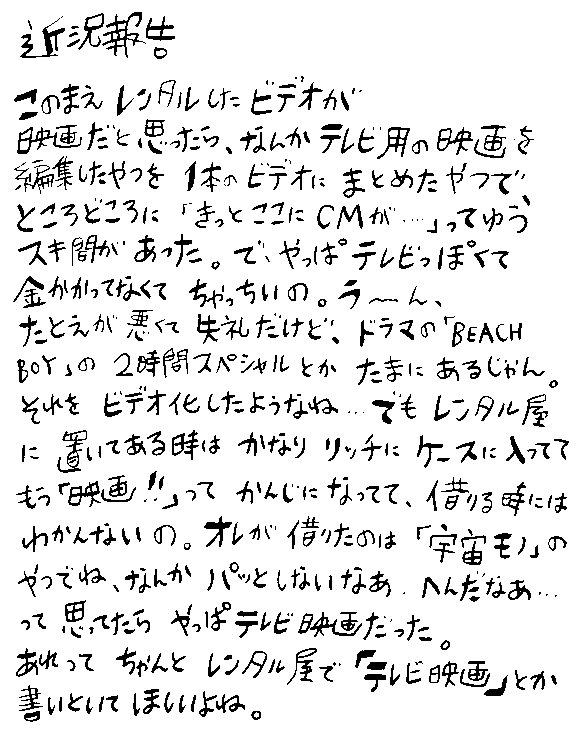 近況報告
このまえ レンタルした ビデオが
映画だと思ったら、なんか テレビ用の映画を
編集したやつを 1本の ビデオに まとめたやつで、
ところどころに 「きっと ここに CMが…」ってゆう
スキ間が あった。で、やっぱ テレビっぽくて
金かかってなくて ちゃっちいの。う〜ん、
たとえが 悪くて 失礼だけど、ドラマの「BEACH
BOY」の 2時間スペシャルとか たまに あるじゃん。
それを ビデオ化したようなね…でも レンタル屋
に 置いてある時は かなり リッチに ケースに 入ってて
もう「映画!!」って かんじに なってて、借りる時には
わかんないの。オレが 借りたのは 「宇宙モノ」の
やつでね、なんか パッとしないなあ、へんだなあ…
って 思ってたら やっぱ テレビ映画だった。
あれって ちゃんと レンタル屋で 「テレビ映画」とか
書いといて ほしいよね。